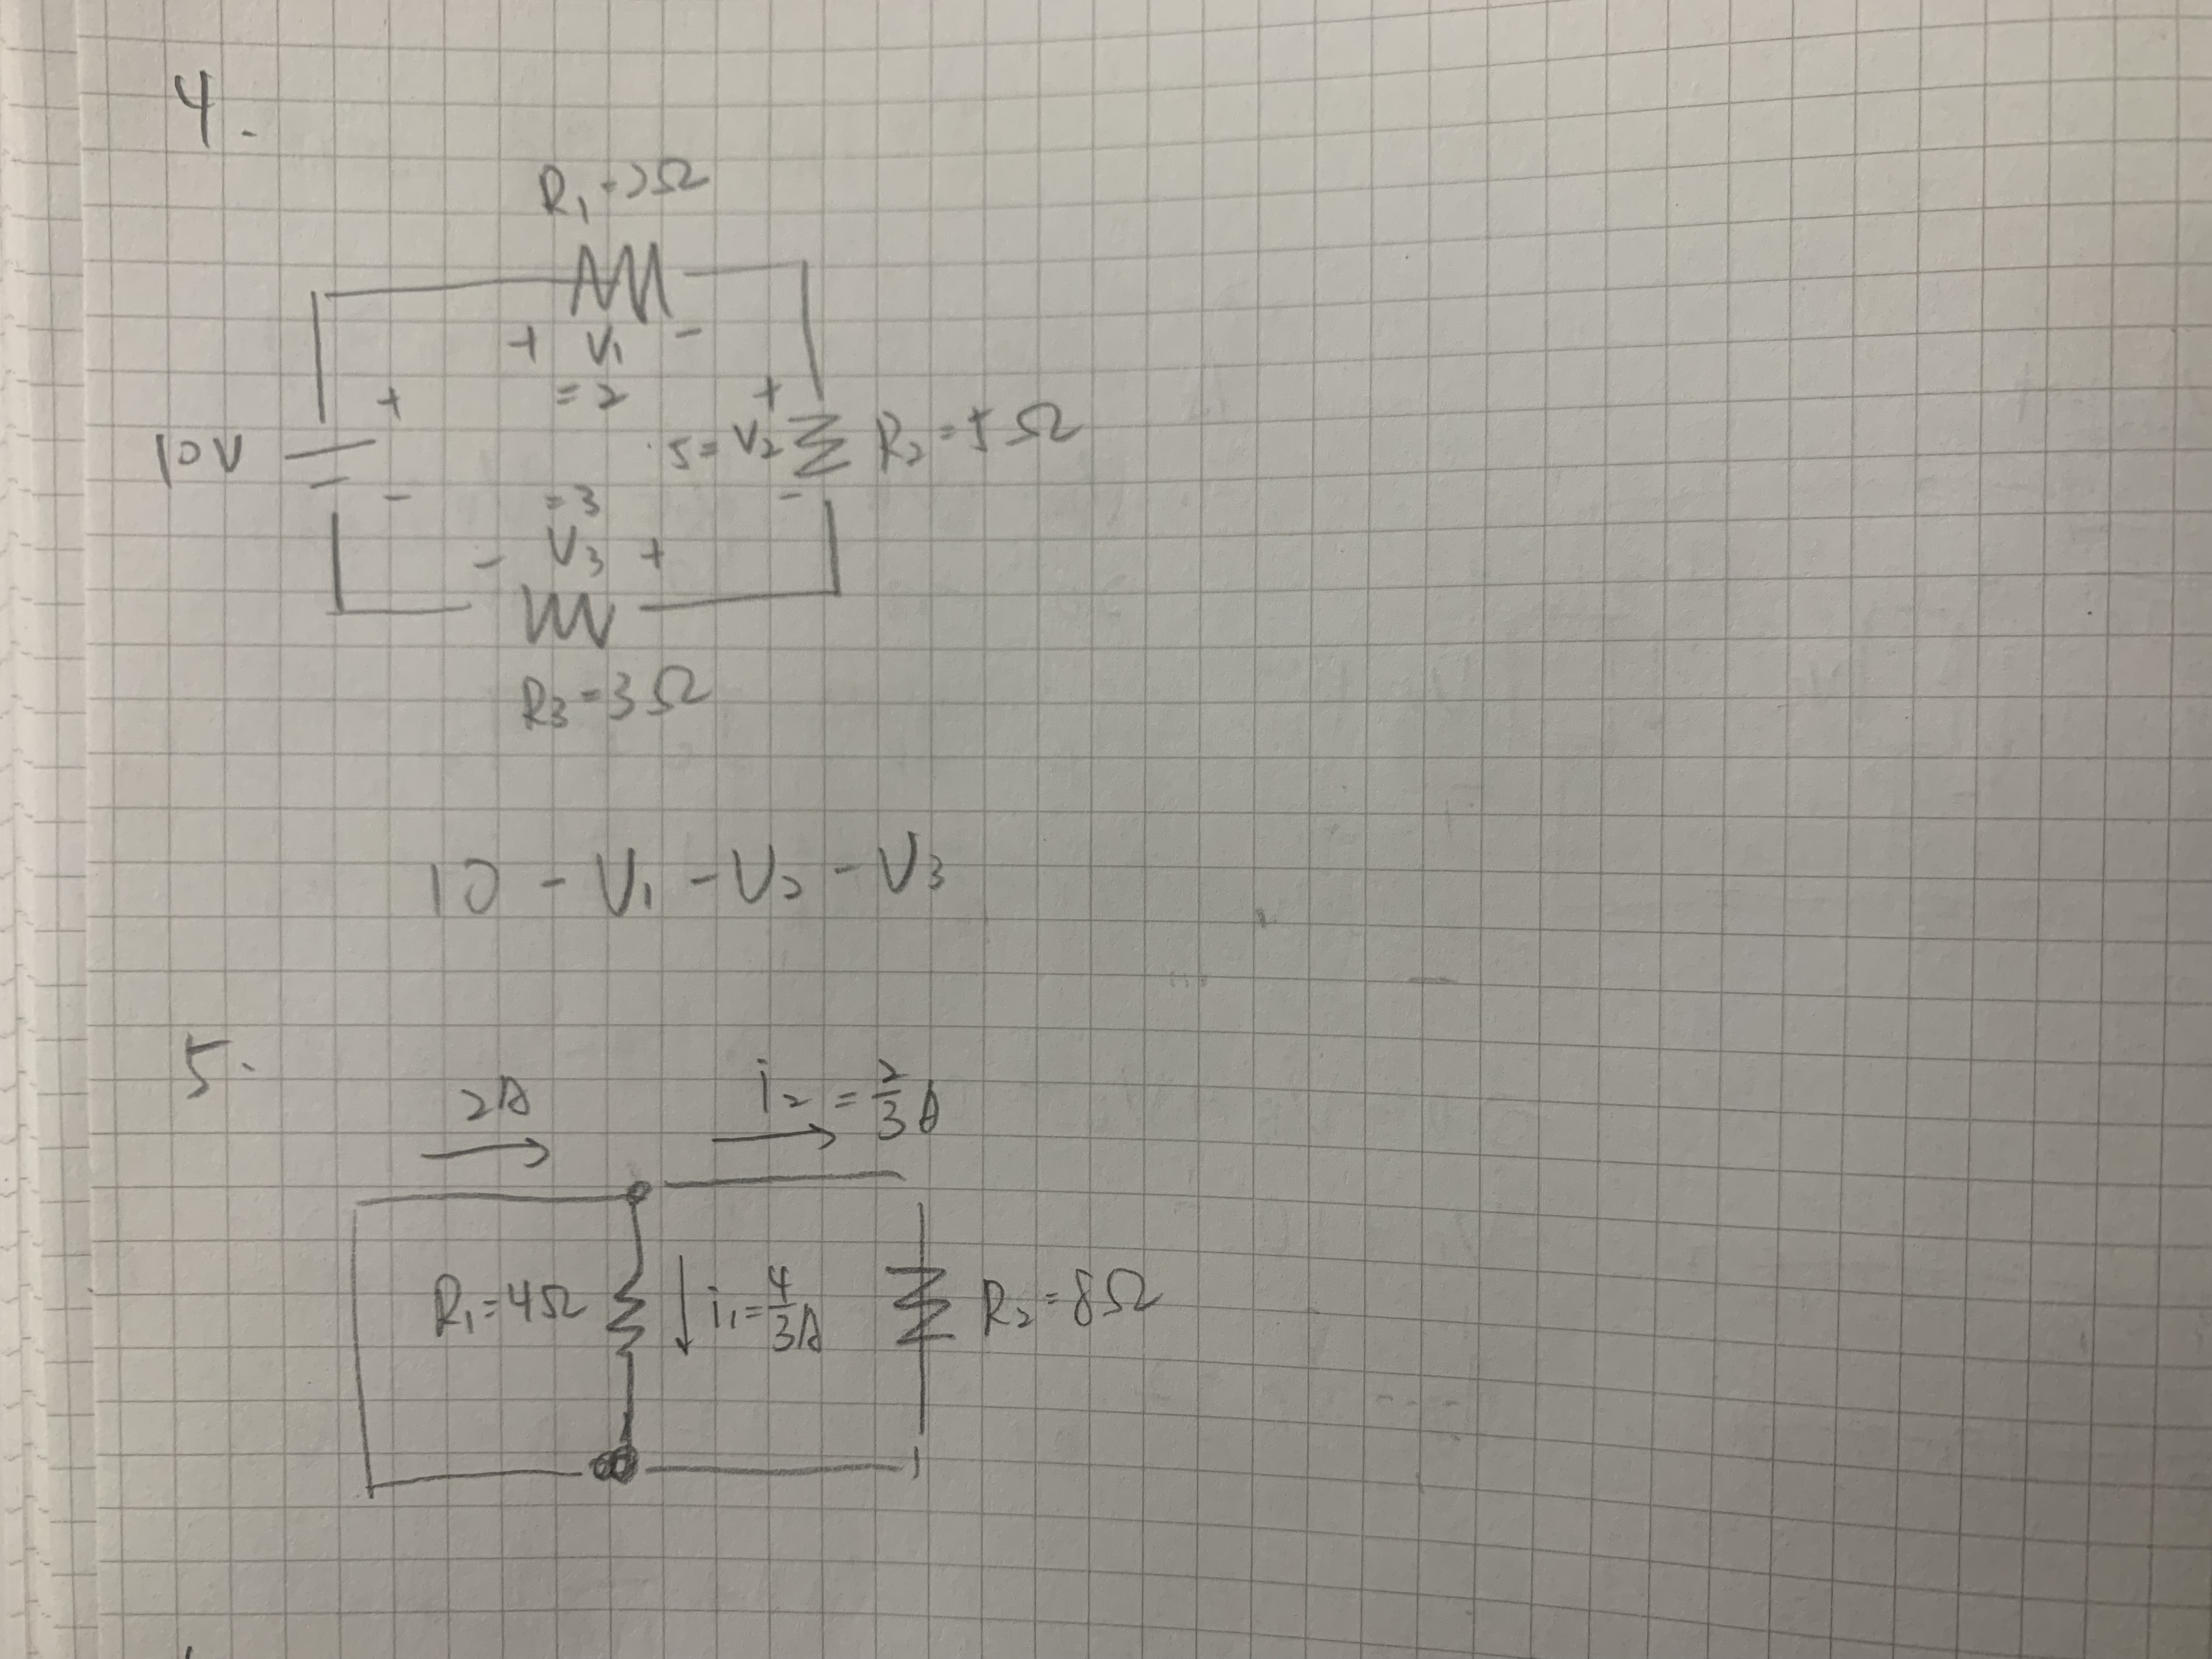 4.
R₁=2Ω
+ V₁ -
=2
10V
+
-
+
5=V₂
-
R₂=5Ω
=3
- V₃ +
R₃=3Ω
10-V₁-V₂-V₃
5.
2A
i₂=2/3A
R₁=4Ω
i₁=4/3A
R₂=8Ω